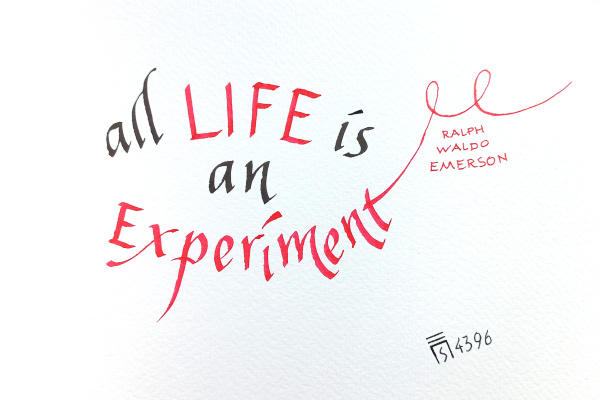 all LIFE is
an
Experiment
RALPH
WALDO
EMERSON
S 4396